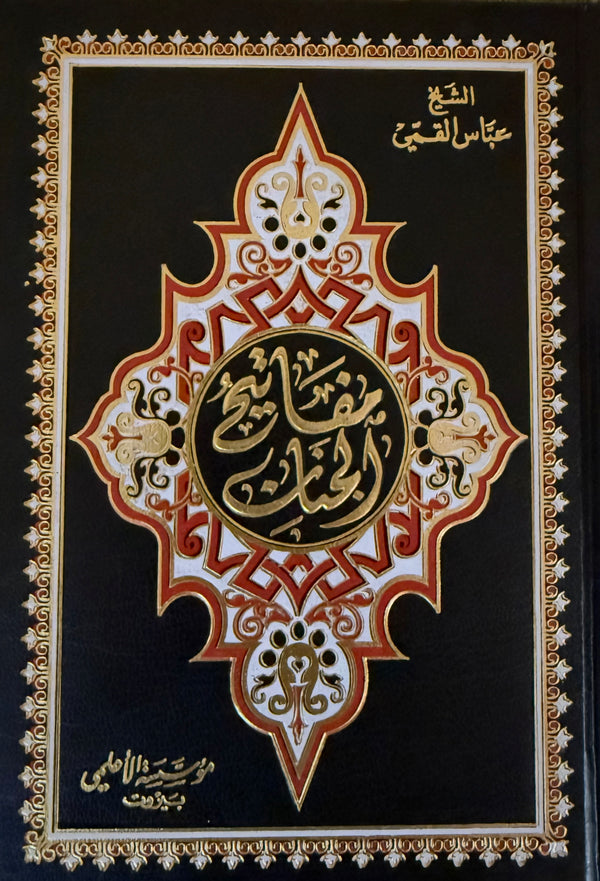 الشيخ
عبّاس القمّي
مفاتيحُ
الجنان
مؤسّسة الأعلمي
بيروت